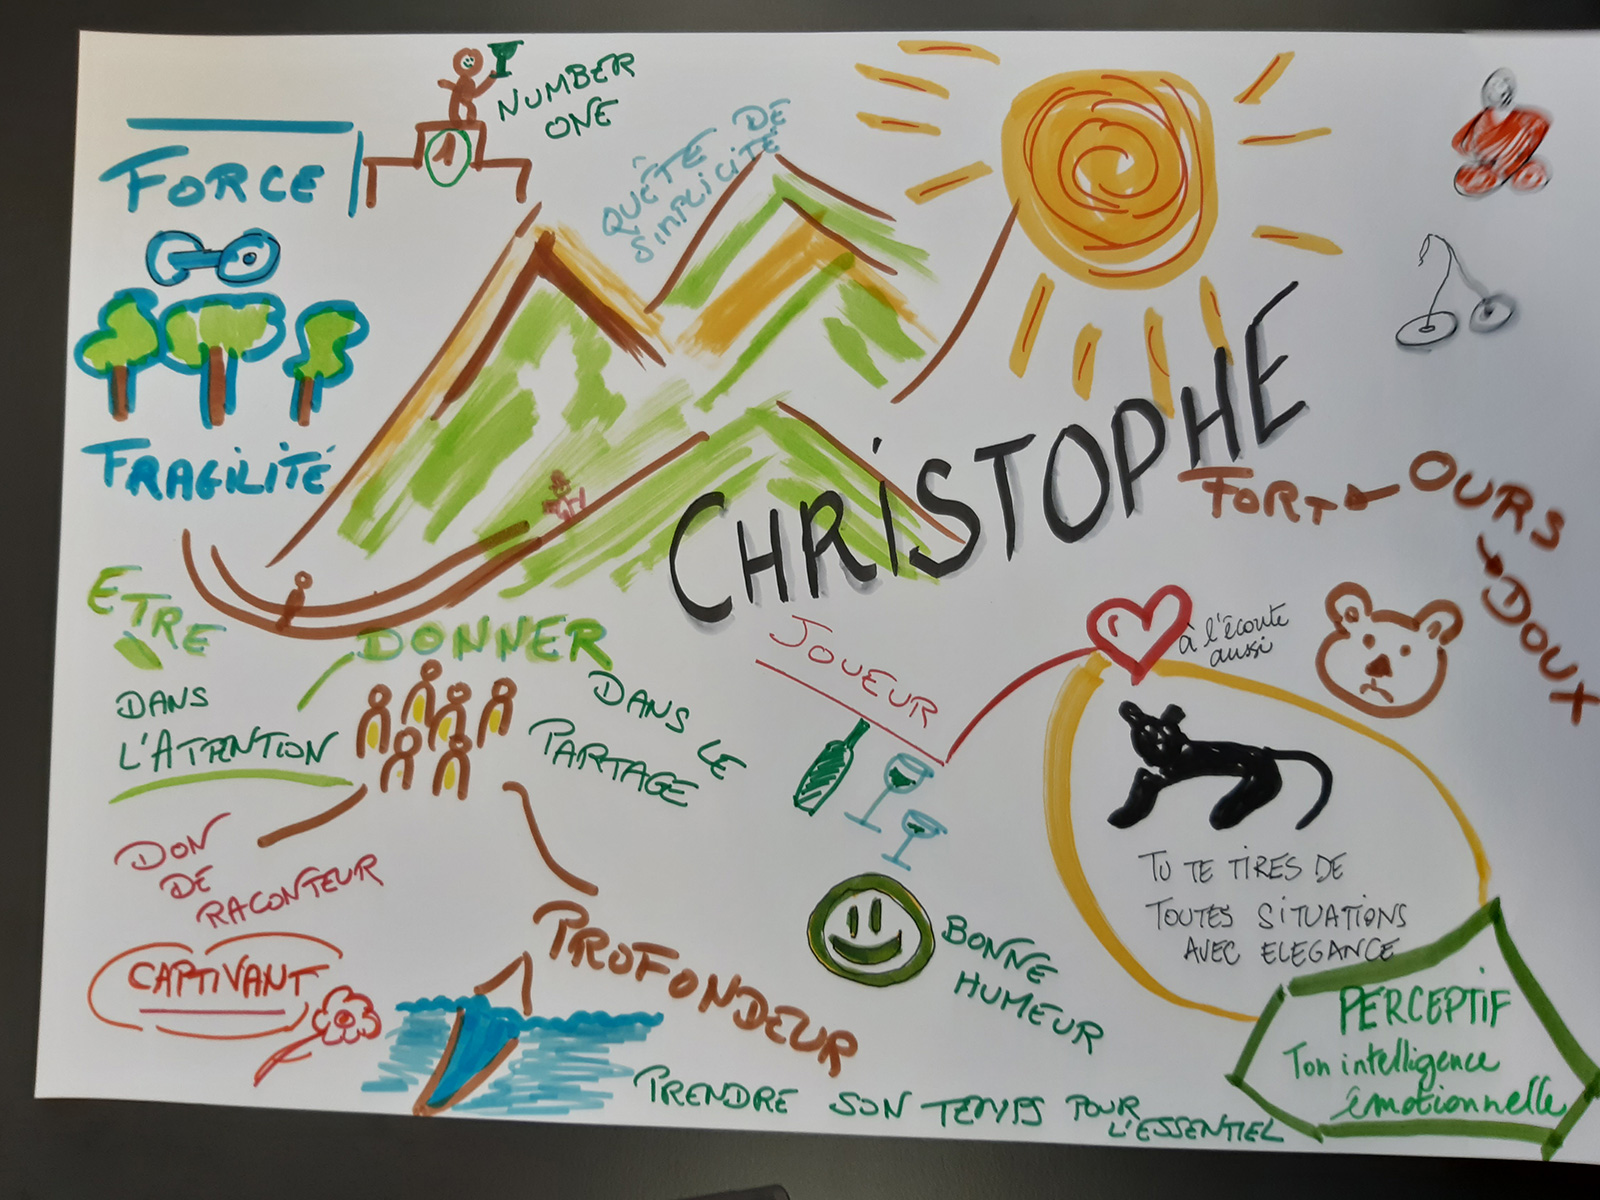 NUMBER
ONE
1
FORCE
QUÊTE DE
SIMPLICITÉ
FRAGILITÉ
CHRISTOPHE
FORT
OURS
DOUX
ETRE
DONNER
DANS
L'ATENTION
DANS LE
PARTAGE
JOUEUR
à l'écoute
aussi
DON
DE
RACONTEUR
CAPTIVANT
PROFONDEUR
BONNE
HUMEUR
TU TE TIRES DE
TOUTES SITUATIONS
AVEC ELEGANCE
PERCEPTIF
Ton intelligence
émotionnelle
PRENDRE SON TEMPS POUR
L'ESSENTIEL